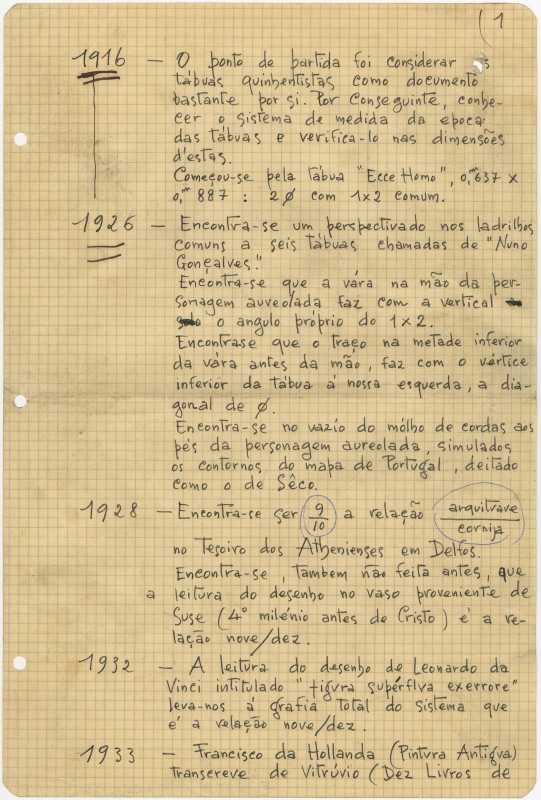 (1
1916 — O ponto de partida foi considerar as
tábuas quinhentistas como documento
bastante por si. Por conseguinte, conhe-
cer o sistema de medida da epoca
das tábuas e verifica-lo nas dimensões
d'estas.
Começou-se pela tábua "Ecce Homo", 0,ᵐ637 x
0,ᵐ 887 : 2 ∅ com 1x2 comum.
1926 — Encontra-se um perspectivado nos ladrilhos
comuns a seis tábuas chamadas de "Nuno
Gonçalves."
Encontra-se que a vára na mão da per-
sonagem aureolada faz com a vertical
o angulo próprio do 1x2.
Encontra-se que o traço na metade inferior
da vára antes da mão, faz com o vértice
inferior da tábua á nossa esquerda, a dia-
gonal de ∅.
Encontra-se no vazio do mólho de cordas aos
pés da personagem aureolada, simulados
os contornos do mapa de Portugal, deitado
como o de Sêco.
1928 — Encontra-se ser 9/10 a relação arquitrave/cornija
no Tesoiro dos Athenienses em Delfos.
Encontra-se, tambem não feita antes, que
a leitura do desenho no vaso proveniente de
Suse (4º milénio antes de Cristo) é a re-
lação nove/dez.
1932 — A leitura do desenho de Leonardo da
Vinci intitulado "figura supérflva exerrore"
leva-nos á grafia total do sistema que
é a relação nove/dez.
1933 — Francisco da Hollanda (Pintura Antigva)
transcreve de Vitrúvio (Dez Livros de